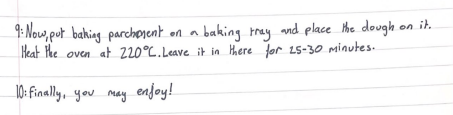 9: Now, put baking parchment on a baking tray and place the dough on it.
Heat the oven at 220°C. Leave it in there for 25-30 minutes.
10: Finally, you may enjoy!